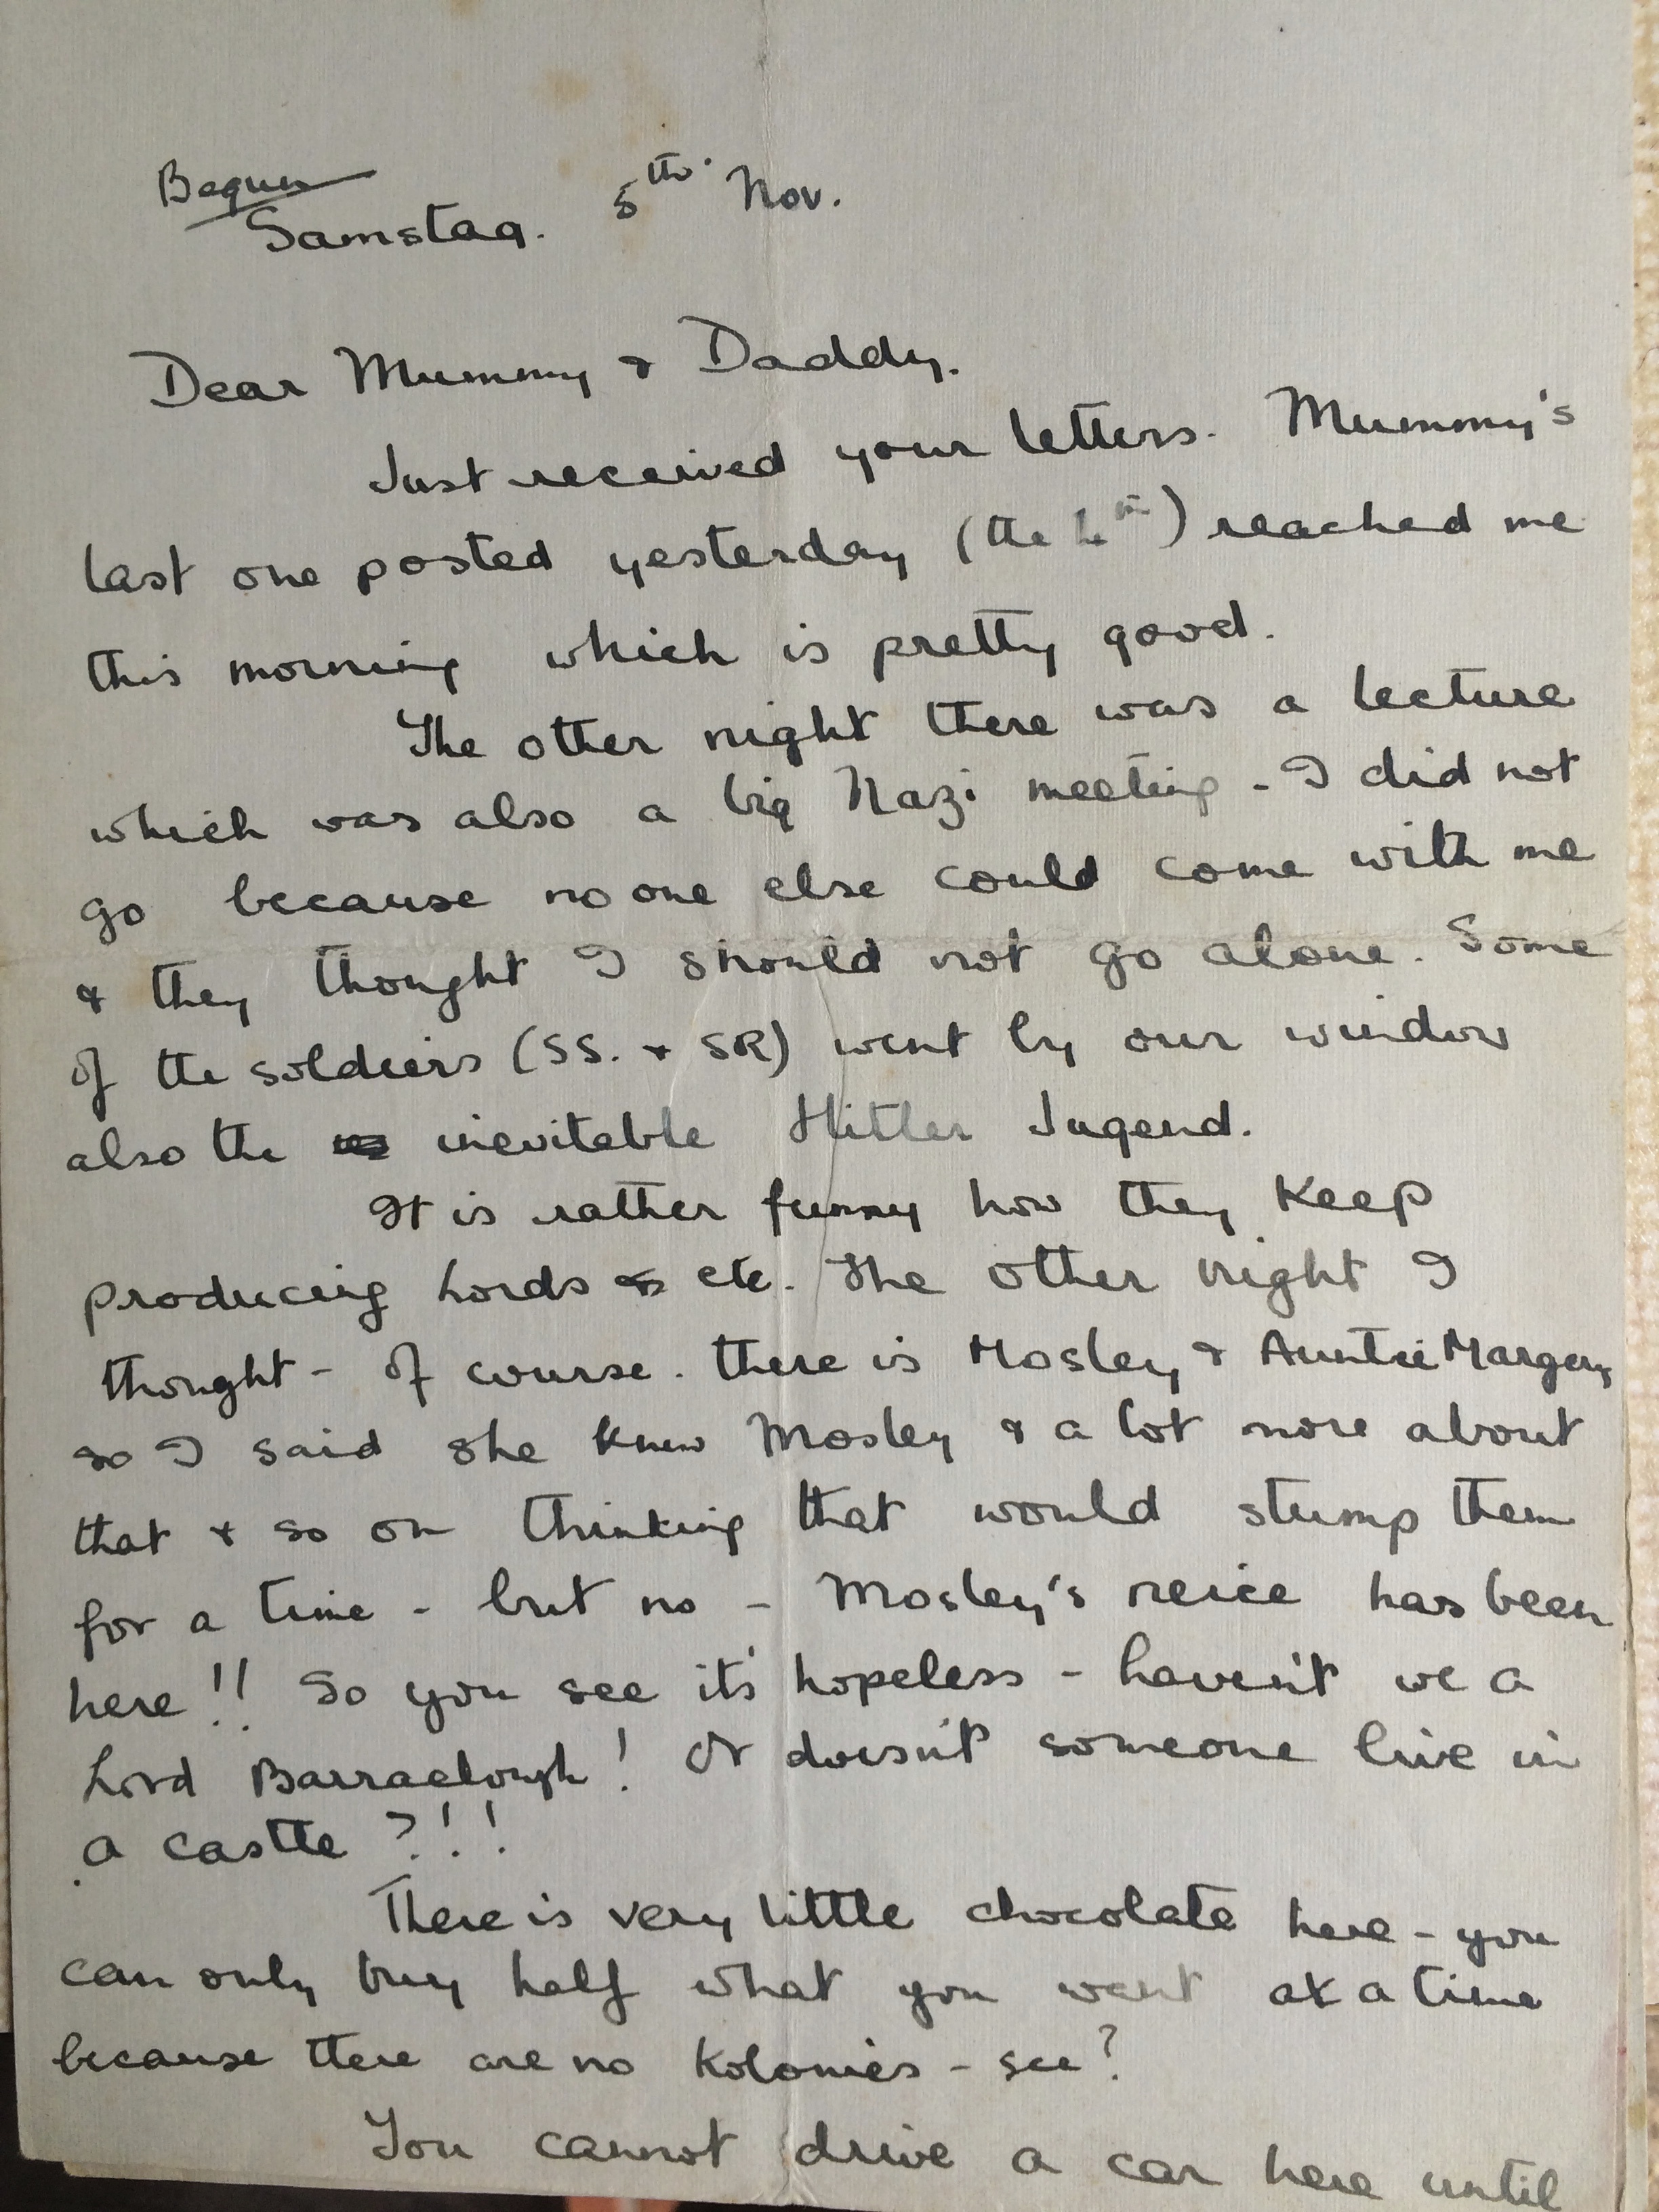 Begun
Samstag. 5th. Nov.
Dear Mummy & Daddy.
Just received your letters. Mummy's
last one posted yesterday (the 4th) reached me
this morning which is pretty good.
The other night there was a lecture
which was also a big Nazi meeting - I did not
go because no one else could come with me
& they thought I should not go alone. Some
of the soldiers (SS. & SR) went by our window
also the inevitable Hitler Jugend.
It is rather funny how they keep
producing Lords etc. The other night I
thought - of course. there is Mosley & Auntie Margery
so I said she knew Mosley & a lot more about
that & so on thinking that would stump them
for a time - but no - Mosley's neice has been
here!! So you see its hopeless - haven't we a
Lord Barraclough! Or doesn't someone live in
a castle ?!!
There is very little chocolate here - you
can only buy half what you want at a time
because there are no Kolonies - see?
You cannot drive a car here until